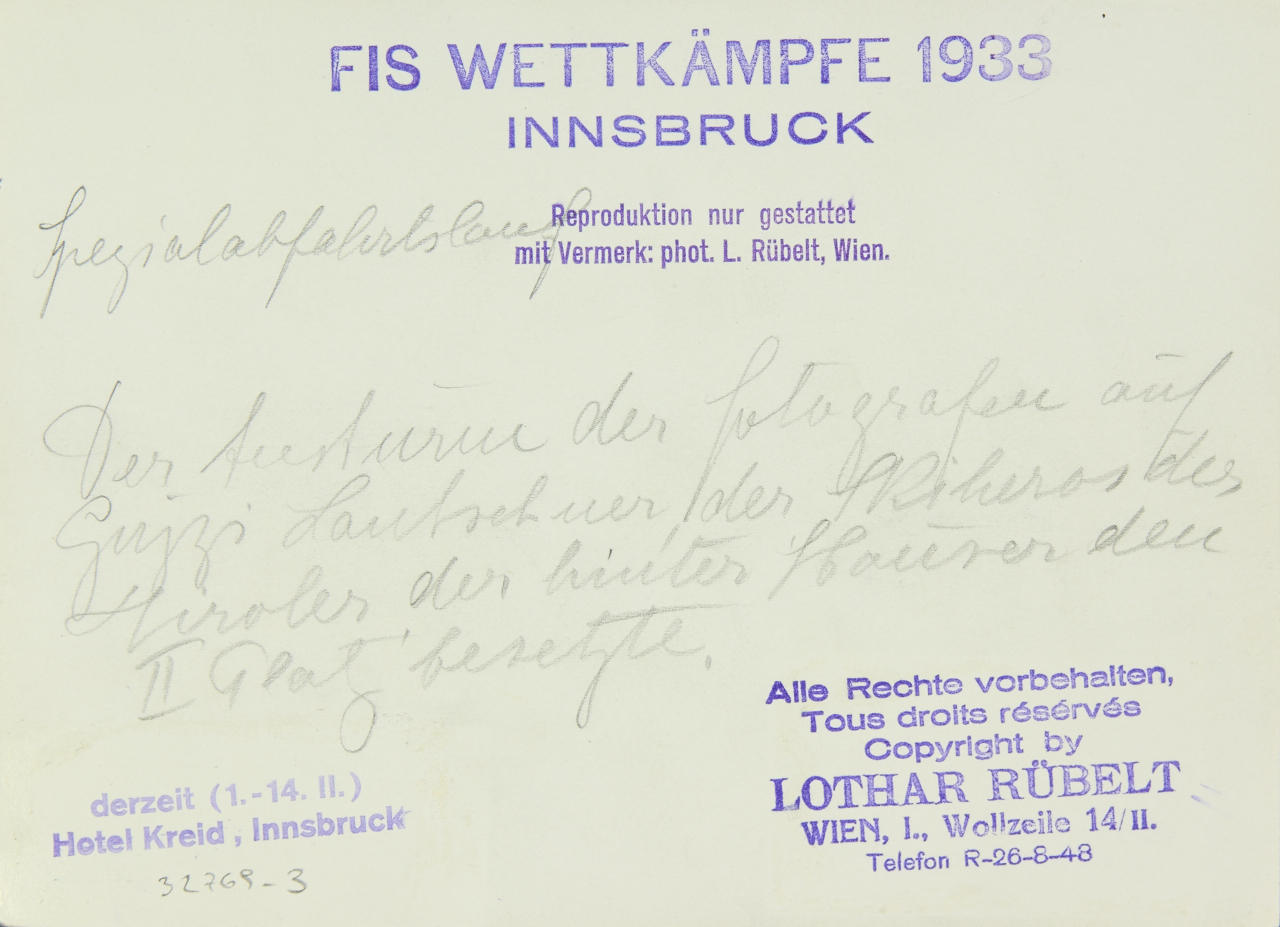 FIS WETTKÄMPFE 1933
INNSBRUCK
Spezialabfahrtslauf
Reproduktion nur gestattet
mit Vermerk: phot. L. Rübelt, Wien.
Der Ansturm der Fotografen auf
Guzzi Lantschner, der Skiheros der
Tiroler der hinter Hauser den
II Platz besetzte.
Alle Rechte vorbehalten,
Tous droits résérvés
Copyright by
LOTHAR RÜBELT
WIEN, I., Wollzeile 14/II.
Telefon R-26-8-48
derzeit (1.-14. II.)
Hotel Kreid, Innsbruck
32769-3